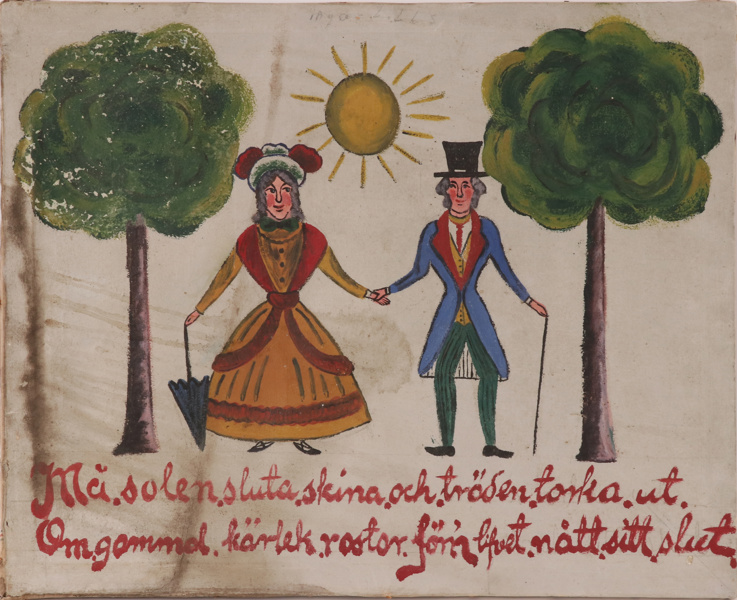 Må.solen.sluta.skina.och.träden.torka.ut.
Om.gammal.kärlek.rostar.förr'n lifvet.nått.sitt.slut.